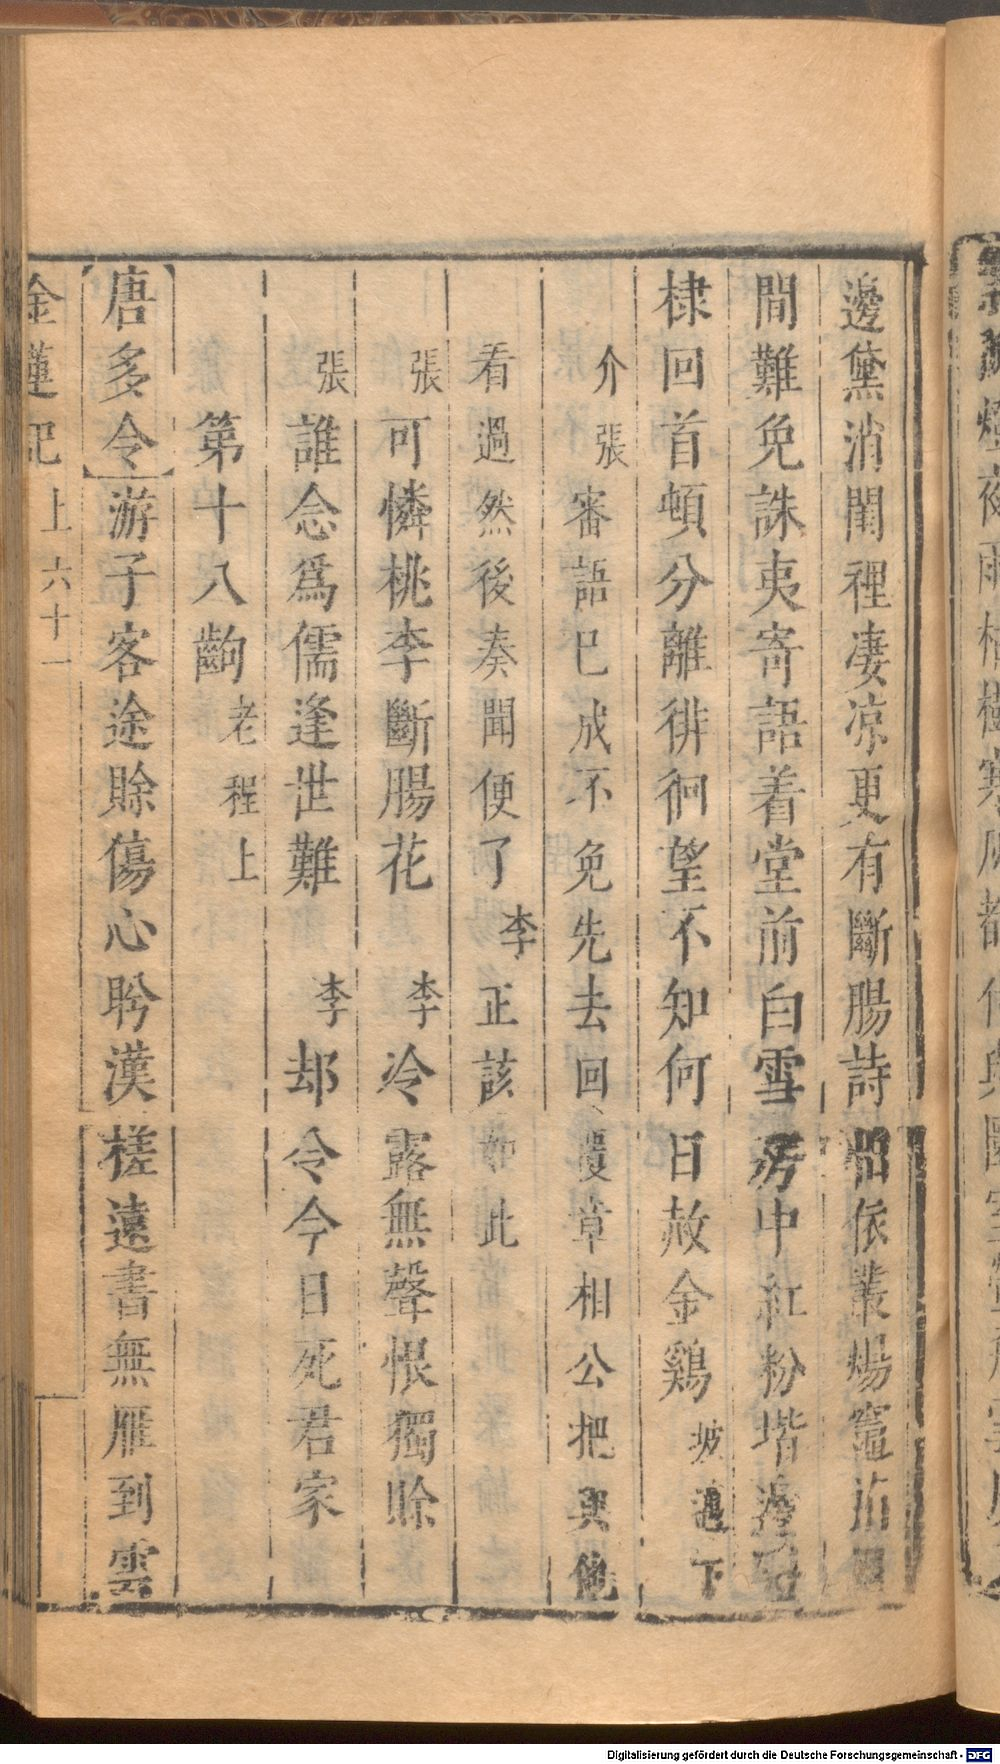 邊黛消閨裡凄凉更有斷腸詩 依叢煬竈
間難免誅夷寄語着堂前白雪 中紅粉堦邊
棣回首頓分離徘徊望不知何日赦金鷄坡
介張審語已成不免先去回覆章相公把與他
看過然後奏聞便了李正該如此
張可憐桃李斷腸花 李冷露無聲恨獨賒
張誰念爲儒逢世難 李却令今日死君家
第十八齣老程上
唐多令游子客途賒傷心盻漢槎遠書無雁到雲
金蓮記上 六十一
Digitalisierung gefördert durch die Deutsche Forschungsgemeinschaft - DFG